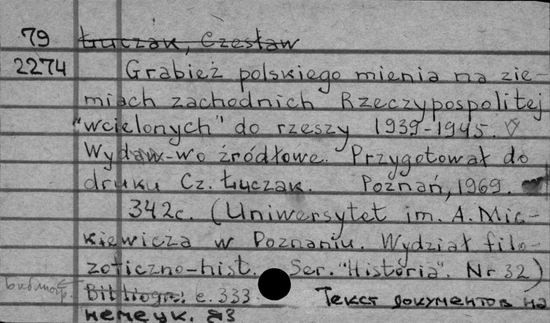 79 Łuczak, Czesław
2274 Grabież polskiego mienia na zie-
miach zachodnich Rzeczypospolitej
"wcielonych" do rzeszy 1939-1945.
Wydaw-wo źródłowe. Przygotował do
druku Cz. Łuczak. Poznań, 1969.
342c. (Uniwersytet im. A. Mic-
kiewicza w Poznaniu. Wydział filo-
zoficzno-hist. Ser. "Historia". Nr 32)
Bibliogr.: c. 333. Текст документов на
немецк. яз